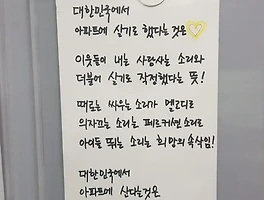 대한민국에서
아파트에 살기로 했다는 것은
이웃들이 내는 사람사는 소리와
더불어 살기로 작정했다는 뜻!
때로는 싸우는 소리가 멜로디로
의자끄는 소리는 퍼커션 소리로
아이들 뛰는 소리는 희망의 속삭임!
대한민국에서
아파트에 산다는것은